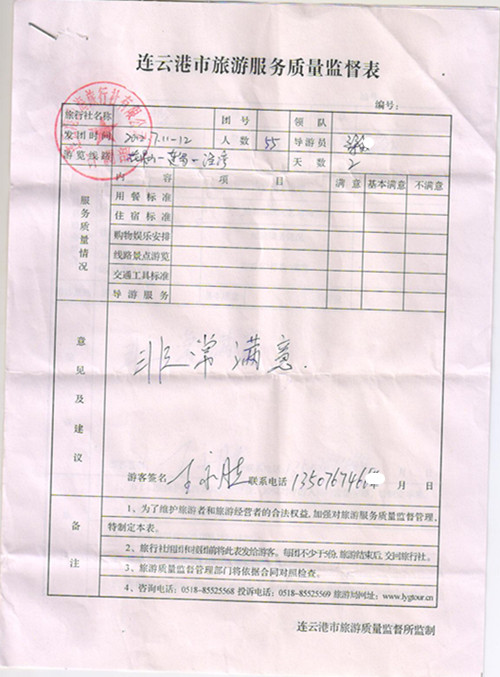 连云港市旅游服务质量监督表
编号：
旅行社名称 团号 领队
发团时间 7.11-12 人数 55 导游员
游览线路 天数 2
服务质量情况 内容 项目 满意 基本满意 不满意
用餐标准
住宿标准
购物娱乐安排
线路景点游览
交通工具标准
导游服务
意见及建议
非常满意.
游客签名 联系电话 1350767466 月 日
备注
1、为了维护旅游者和旅游经营者的合法权益，加强对旅游服务质量监督管理，
特制定本表。
2、旅行社 将此表发给游客。每团不少于5份，旅游结束后，交回旅行社。
3、旅游质量监督管理部门将依据合同对照检查。
4、咨询电话：0518-85525568 投诉电话：0518-85525569 旅游局网址：www.lygtour.cn
连云港市旅游质量监督所监制